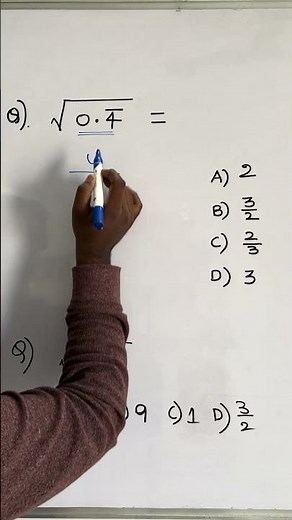 Q). √0.4̅ =
A) 2
B) 3/2
C) 2/3
D) 3
Q)
)9 C)1 D)3/2